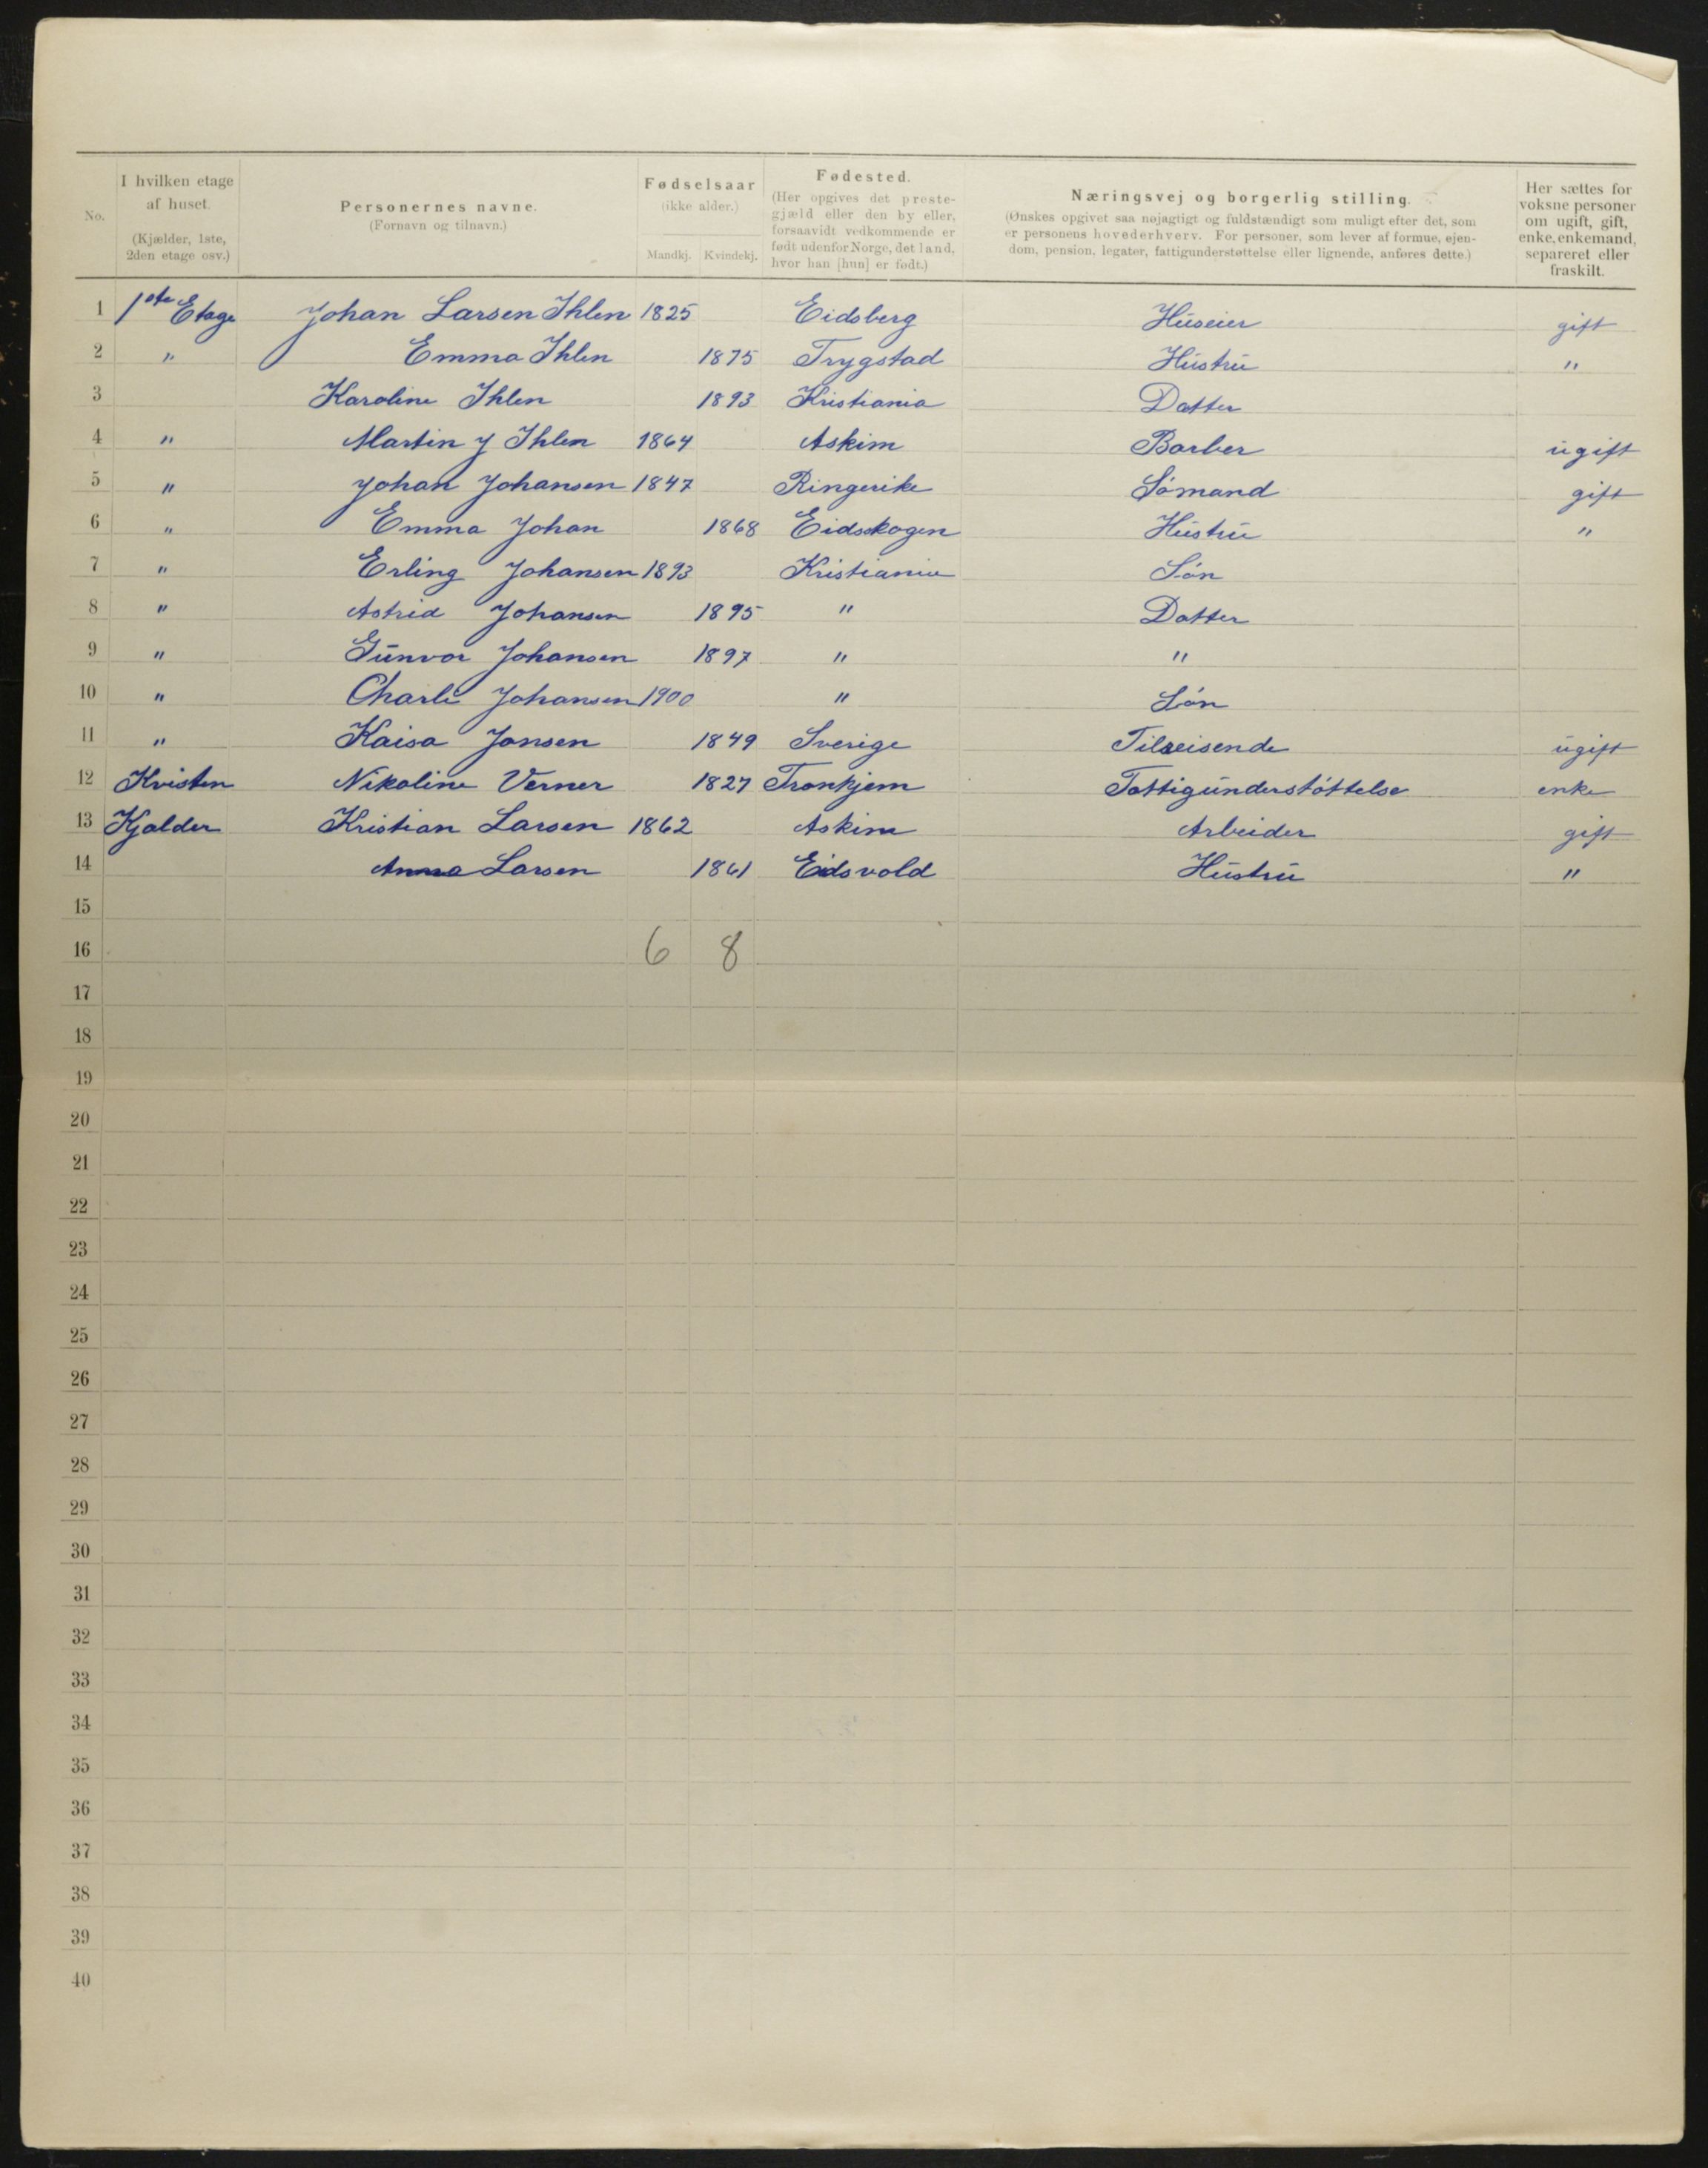 No.
I hvilken etage af huset. (Kjælder, 1ste, 2den etage osv.)
Personernes navne. (Fornavn og tilnavn.)
Fødselsaar (ikke alder.)
Mandkj. Kvindekj.
Fødested. (Her opgives det prestegjæld eller den by eller, forsaavidt vedkommende er født udenfor Norge, det land, hvor han [hun] er født.)
Næringsvej og borgerlig stilling. (Ønskes opgivet saa nøjagtigt og fuldstændigt som muligt efter det, som er personens hovederhverv. For personer, som lever af formue, ejendom, pension, legater, fattigunderstøttelse eller lignende, anføres dette.)
Her sættes for voksne personer om ugift, gift, enke, enkemand, separeret eller fraskilt.
1 1ste Etage Johan Larsen Ihlen 1825 Eidsberg Huseier gift
2 " Emma Ihlen 1875 Trygstad Hustru "
3 Karoline Ihlen 1893 Kristiania Datter
4 " Martin J Ihlen 1864 Askim Barber ugift
5 " Johan Johansen 1847 Ringerike Sómand gift
6 " Emma Johan 1868 Eidsskogen Hustru "
7 " Erling Johansen 1893 Kristiania Són
8 " Astrid Johansen 1895 " Datter
9 " Gunvor Johansen 1897 " "
10 " Charli Johansen 1900 " Són
11 " Kaisa Jansen 1849 Sverige Tilreisende ugift
12 Kvisten Nikoline Verner 1827 Tronhjem Fattigunderstóttelse enke
13 Kjalder Kristian Larsen 1862 Askim Arbeider gift
14 Anna Larsen 1861 Eidsvold Hustru "
15
16 6 8
17
18
19
20
21
22
23
24
25
26
27
28
29
30
31
32
33
34
35
36
37
38
39
40